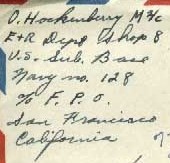 O. Hockenbury M 3/c
E+R Dept Shop 8
U.S. Sub. Base
Navy no. 128
c/o F.P.O.
San Francisco
California